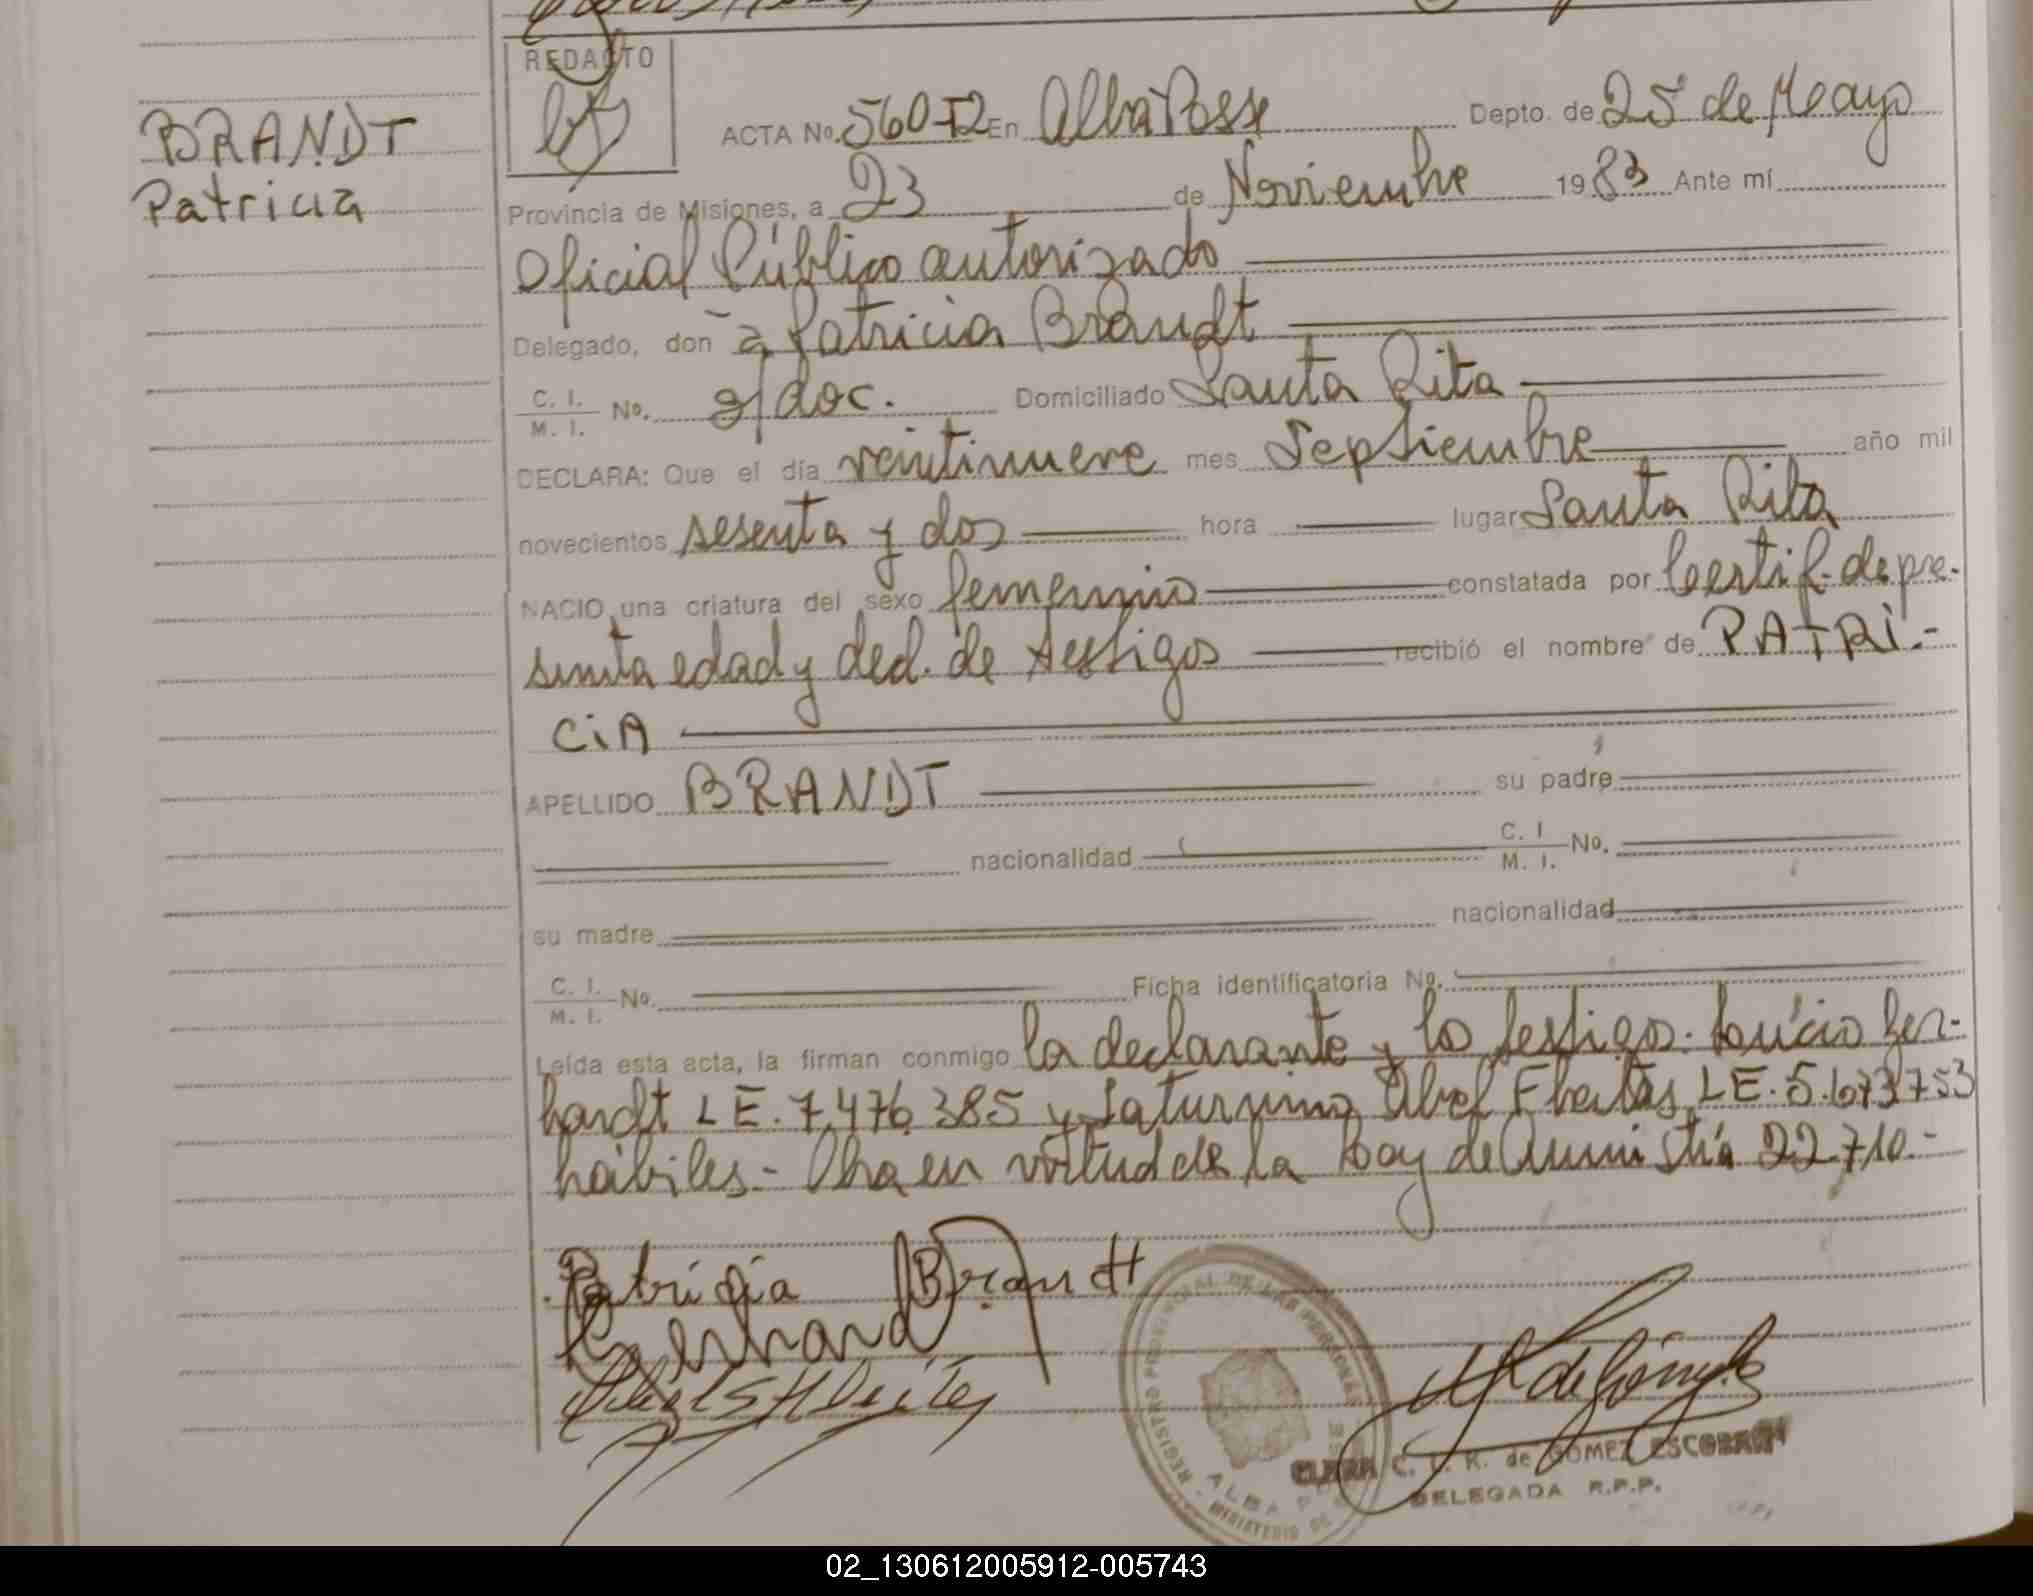 REDACTO
BRANDT
Patricia
ACTA No. 560-T2 En Alba Posse Depto. de 25 de Mayo
Provincia de Misiones, a 23 de Noviembre 1983 Ante mí
Oficial Público autorizado
Delegado, don a Patricia Brandt
C. I. / M. I. No. s/doc. Domiciliado Santa Rita
DECLARA: Que el día veintinueve mes Septiembre año mil
novecientos sesenta y dos hora lugar Santa Rita
NACIO una criatura del sexo femenino constatada por Certif. de pre-
sunta edad y decl. de testigos recibió el nombre de PATRI-
CiA
APELLIDO BRANDT su padre
nacionalidad C. I / M. I. No.
su madre nacionalidad
C. I. / M. I. No. Ficha identificatoria No.
Leída esta acta, la firman conmigo la declarante y lo testigo. Lucio Ger-
hardt LE. 7.476.385 y Saturnino Abel Fleitas LE. 5.673753
hábiles.- Obra en virtud de la Ley de Amnistía 22.710.-
Patricia Brandt
Gerhard
REGISTRO PROVINCIAL DE LAS PERSONAS
ALBA POSSE
MINISTERIO DE
CLARA C. L. R. de GOMEZ ESCOBAR
DELEGADA R.P.P.
02_130612005912-005743